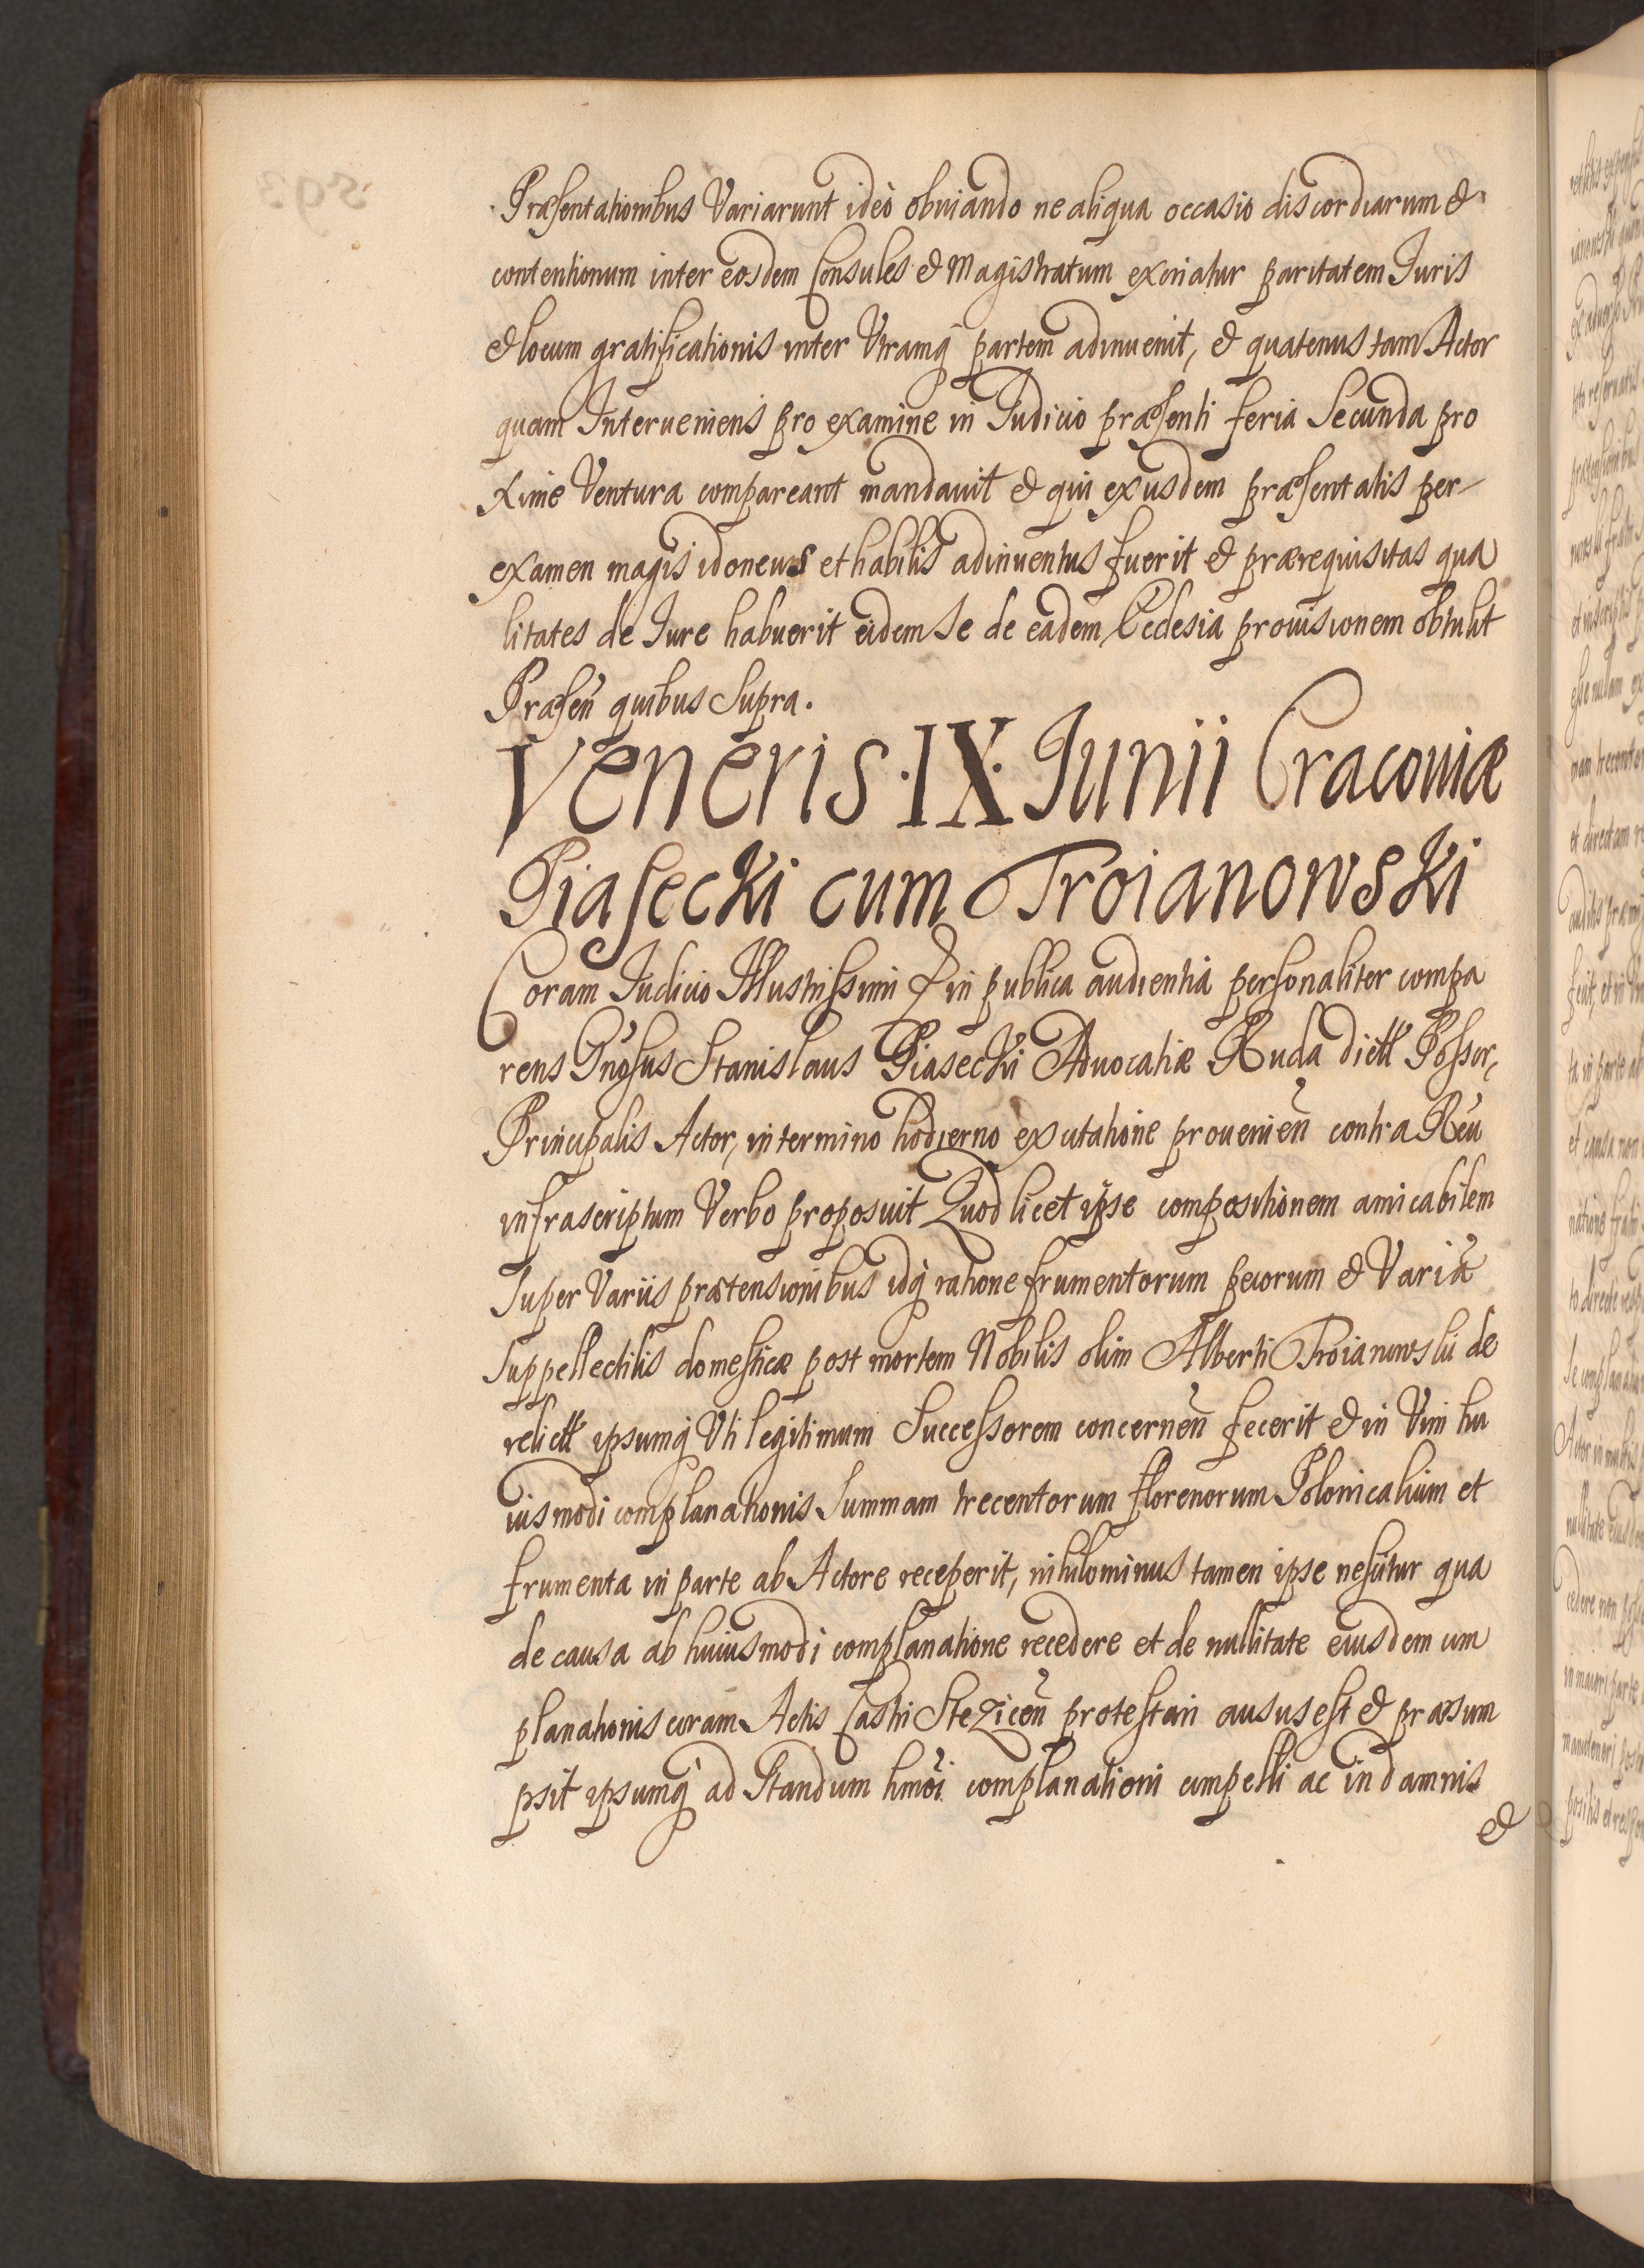 Præsentationibus Variarunt ideò obuiando ne aliqua occasio discordiarum &
contentionum inter eosdem Consules & Magistratum exoriatur paritatem Juris
& locum gratificationis inter Vtramq partem adinuenit, & quatenus tam Actor
quam Interueniens pro examine in Judicio præsenti feria Secunda pro
xime Ventura compareant mandauit & qui ex iisdem præsentatis per
examen magis idoneus et habilis adinuentus fuerit & prærequisitas qua
litates de Jure habuerit eidem se de eadem Ecclesia prouisionem obtulit
Præsen quibus Supra.
Veneris IX Junii Cracouiæ
Piasecki cum Troianowski
Coram Judicio Illustrissimi & in publica audientia personaliter compa
rens Gnosus Stanislaus Piasecki Aduocatiæ Ruda dictæ Possor,
Principalis Actor, in termino hodierno ex citatione prouenien contra Reu
infrascriptum Verbo proposuit Quod licet ipse compositionem amicabilem
Super Variis prætensionibus idq ratione frumentorum pecorum & Variæ
Suppellectilis domesticæ post mortem Nobilis olim Alberti Troianowski de
relictæ ipsumq Vti legitimum Successorem concernen fecerit & in Vim hu
iusmodi complanationis Summam trecentorum florenorum Polonicalium et
frumenta in parte ab Actore receperit, nihilominus tamen ipse nescitur qua
de causa ab huiusmodi complanatione recedere et de nullitate eiusdem com
planationis coram Actis Castri Stezicen protestari ausus est & præsum
psit ipsumq ad Standum hmoi complanationi compelli ac in damnis
&